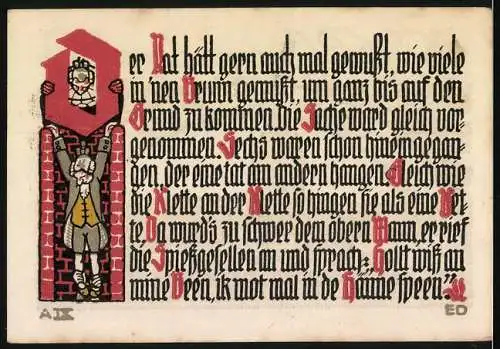 Der Rat hätt gern auch mal gewußt, wie viele
in'nen Brunn gemußt, um ganz bis auf den
Grund zu kommen. Die Sache ward gleich vor-
genommen. Sechs waren schon hineingegan-
gen, der eine tat am andern hangen. Gleich wie
die Klette an der Klette so hingen sie als eine Ket-
te. Da wurd's zu schwer dem obern Mann, er rief
die Spießgesellen an und sprach: "Holt wiß an
mine Been, ik mot mal in de Hänne speen."
A IX ED